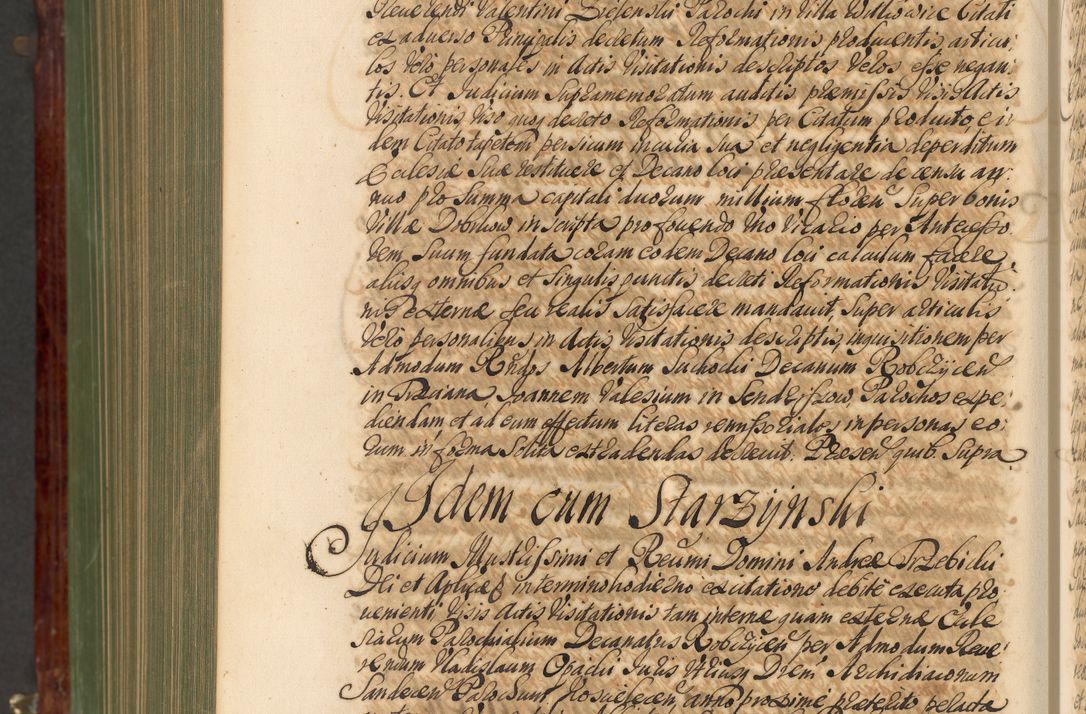 Reverendi Valentini Zielenski Parochi in Villa Witkowice Citati
ex adverso Principalis decretum Reformationis producentis articu-
los vero personales in Actis Visitationis descriptos veros esse negan-
tis. Et Judicium Supramemoratum auditis præmissis visis Actis
Visitationis, viso quoq decreto Reformationis per Citatum producto, ei-
dem Citato tapetom persicum incuria sua et negligentia deperditum
Ecclesiæ suæ restituere et Decano loci præsentare de censu an-
nuo pro Summa capitali duorum millium floren Super bonis
Villæ inscripta pro fovendo uno Vicario per Antecesso
rem Suum fundata coram eodem Decano loci calculum facere
aliisq omnibus et singulis punctis decreti Reformationis Visitatio
nis externæ seu realis Satisfacere mandavit, Super articulis
vero personalibus in Actis Visitationis descriptis inquisitionem per
Admodum Rndos Albertum Suchocki Decanum Robczycen
in Joannem Valesium in Sendzissow, Parochos expe-
diendam et ad eum effectum literas remissoriales in personas eo-
rum in forma Solita extradendas decrevit. Præsen quib. Supra
Idem cum Starzynski
Judicium Illustrissimi et Reumi Domini Andreæ Przebicki
Dei et Aplicæ S in termino hodierno ex citatione debite executa pro
venienti, visis Actis Visitationis tam internæ quam externæ Eccle
siarum Parochialium Decanatus Robczycen per Admodum Reve
rendum Vladislaum Opacki Juris Utriusq Archidiaconum
Sandecen anno proxime præterito peracta